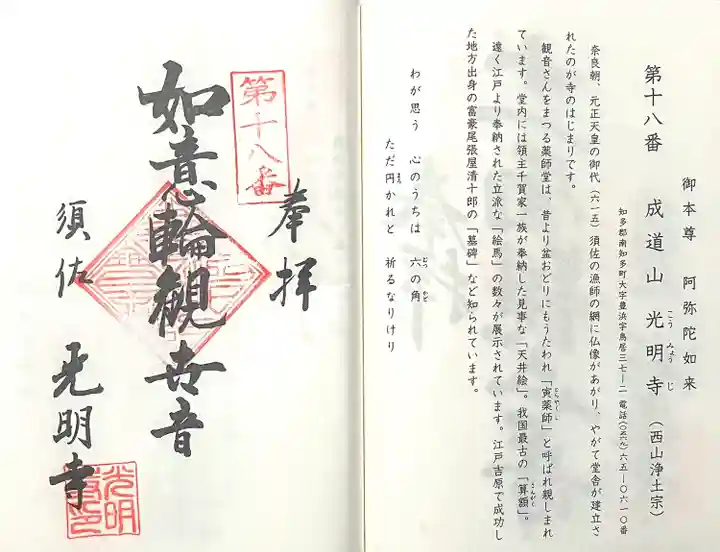 御本尊 阿弥陀如来
第十八番 成道山 光明寺 (西山浄土宗)
こうみょうじ
知多郡南知多町大字豊浜字鳥居三七ー二 電話(〇五六九)六五ー〇六一〇番
奈良朝、元正天皇の御代(六一五)須佐の漁師の網に仏像があがり、やがて堂舎が建立さ
れたのが寺のはじまりです。
観音さんをまつる薬師堂は、昔より盆おどりにもうたわれ「寅薬師」と呼ばれ親しまれ
とらやくし
ています。堂内には領主千賀家一族が奉納した見事な「天井絵」。我国最古の「算額」。
さんがく
遠く江戸より奉納された立派な「絵馬」の数々が展示されています。江戸吉原で成功し
た地方出身の富豪尾張屋清十郎の「墓碑」など知られています。
わが思う 心のうちは 六の角
むつ かど
ただ円かれと 祈るなりけり
まろ
奉拝
第十八番
如意輪観世音
須佐 光明寺
光明